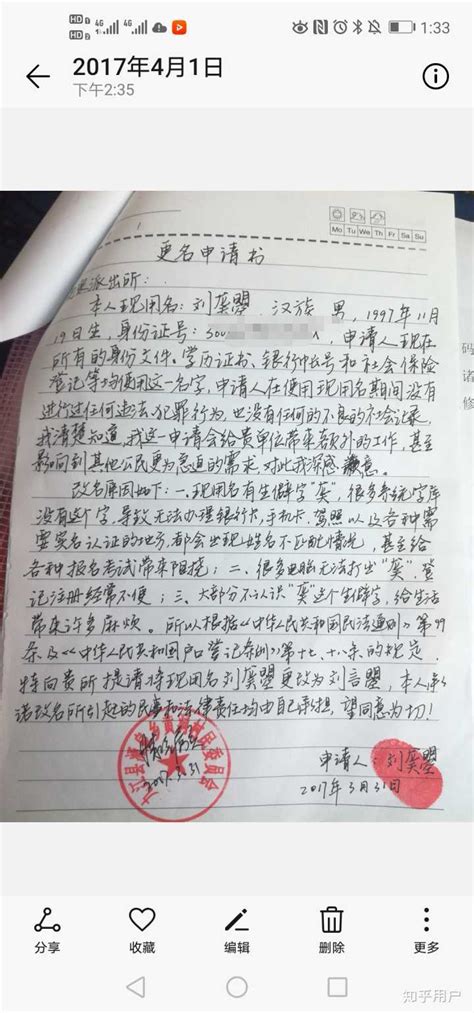 HD 1 4G 4G 1:33
HD 2
2017年4月1日
下午2:35
Mo Tu We Th Fr Sa Su
更名申请书
派出所：
本人现用名：刘䶮曌，汉族，男，1997年11月
19日生，身份证号：500 X，申请人现在
所有的身份文件、学历证书、银行帐号和社会保险
登记等均使用这一名字，申请人在使用现用名期间没有
进行过任何违法、犯罪行为，也没有任何的不良的社会记录，
我清楚知道，我这一申请会给贵单位带来额外的工作，甚至
影响到其他公民更为急迫的需求，对此我深感歉意。
改名原因如下：一、现用名有生僻字“䶮”，很多系统字库
没有这个字，导致无法办理银行卡，手机卡，驾照以及各种需
要实名认证的地方，都会出现姓名不匹配情况，甚至给
各种报名考试带来阻挠；二、很多电脑无法打出“䶮”，登
记注册经常不便；三、大部分不认识“䶮”这个生僻字，给生活
带来许多麻烦。所以根据《中华人民共和国民法通则》第99
条及《中华人民共和国户口登记条例》第十七、十八条的规定，
特向贵所提请将现用名刘䶮曌更改为刘言曌，本人承
诺改名所引起的民事和法律责任均由自己承担，望同意为切！
2017.3.31
申请人：刘䶮曌
2017年3月31日
码
诸
修
分享 收藏 编辑 删除 更多
知乎用户